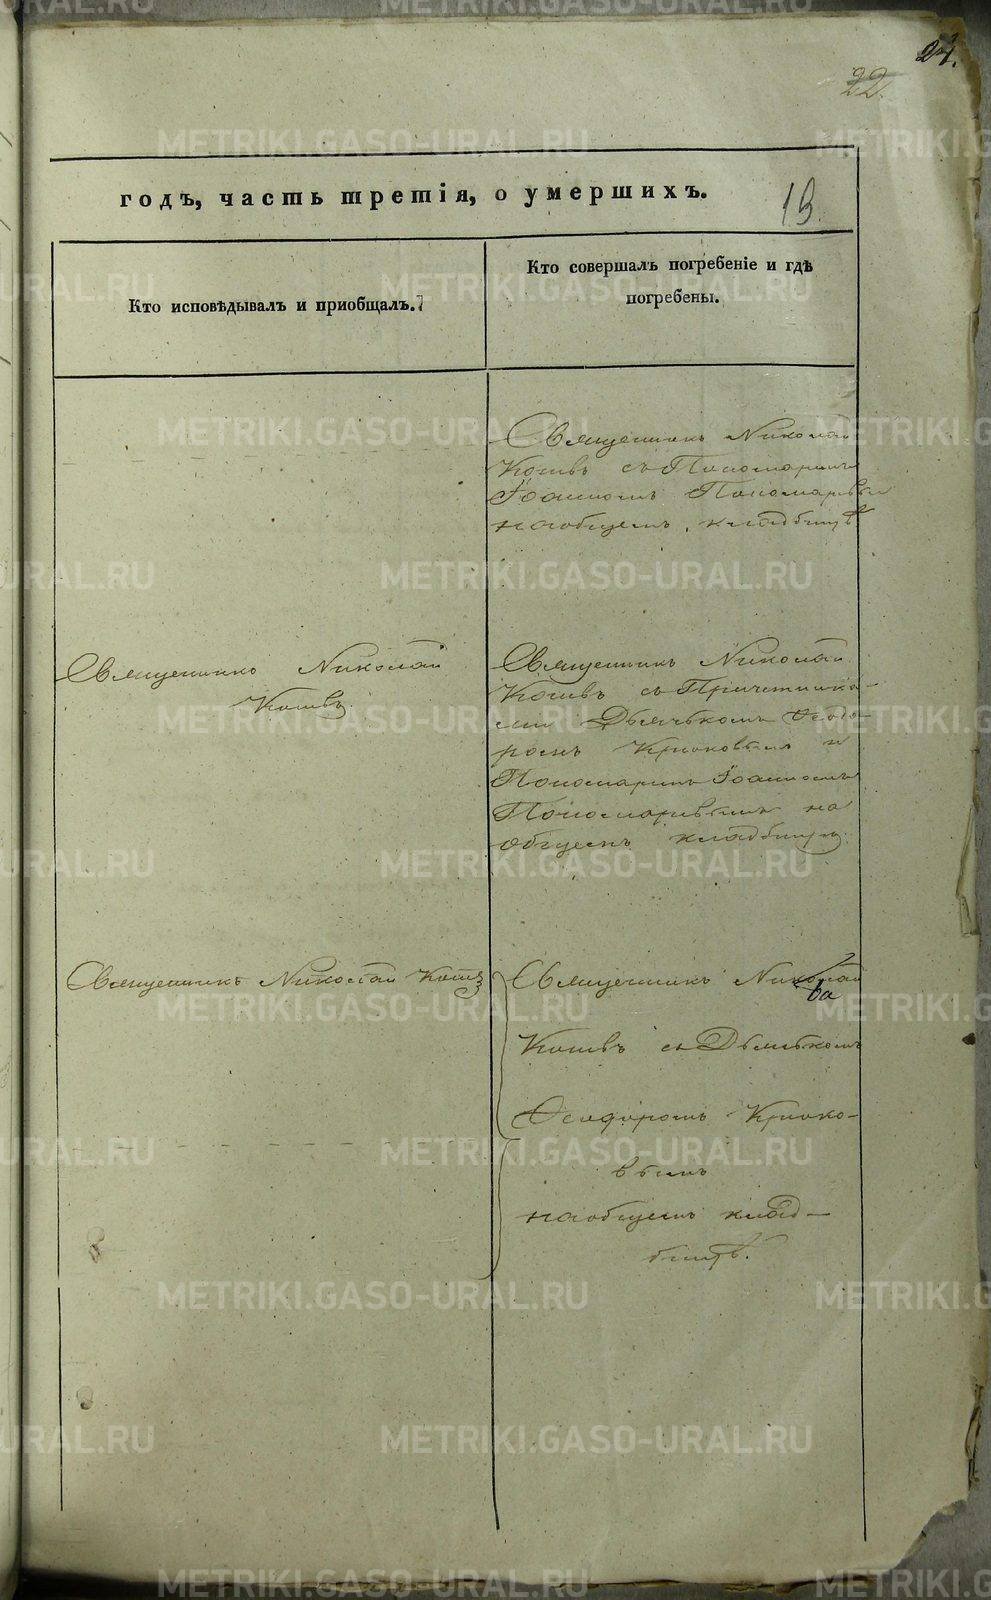 24.
22.
годъ, часть третія, о умершихъ.
19
Кто исповѣдывалъ и пріобщалъ.
Кто совершалъ погребеніе и гдѣ
погребены.
Священникъ Николай
съ Пономаремъ
Іоанномъ Пономаревым
на общемъ кладбищѣ
Священникъ Николай
Священникъ Николай
съ Причетника-
ми Дьячькомъ Ѳеодо-
ромъ Крюковымъ и
Пономаремъ Іоанномъ
Пономаревымъ на
общемъ кладбищѣ.
Священникъ Николай
Священникъ Николай
съ Дьячькомъ
Ѳеодоромъ Крюко-
вымъ
на общемъ клад-
бищѣ.
METRIKI.GASO-URAL.RU